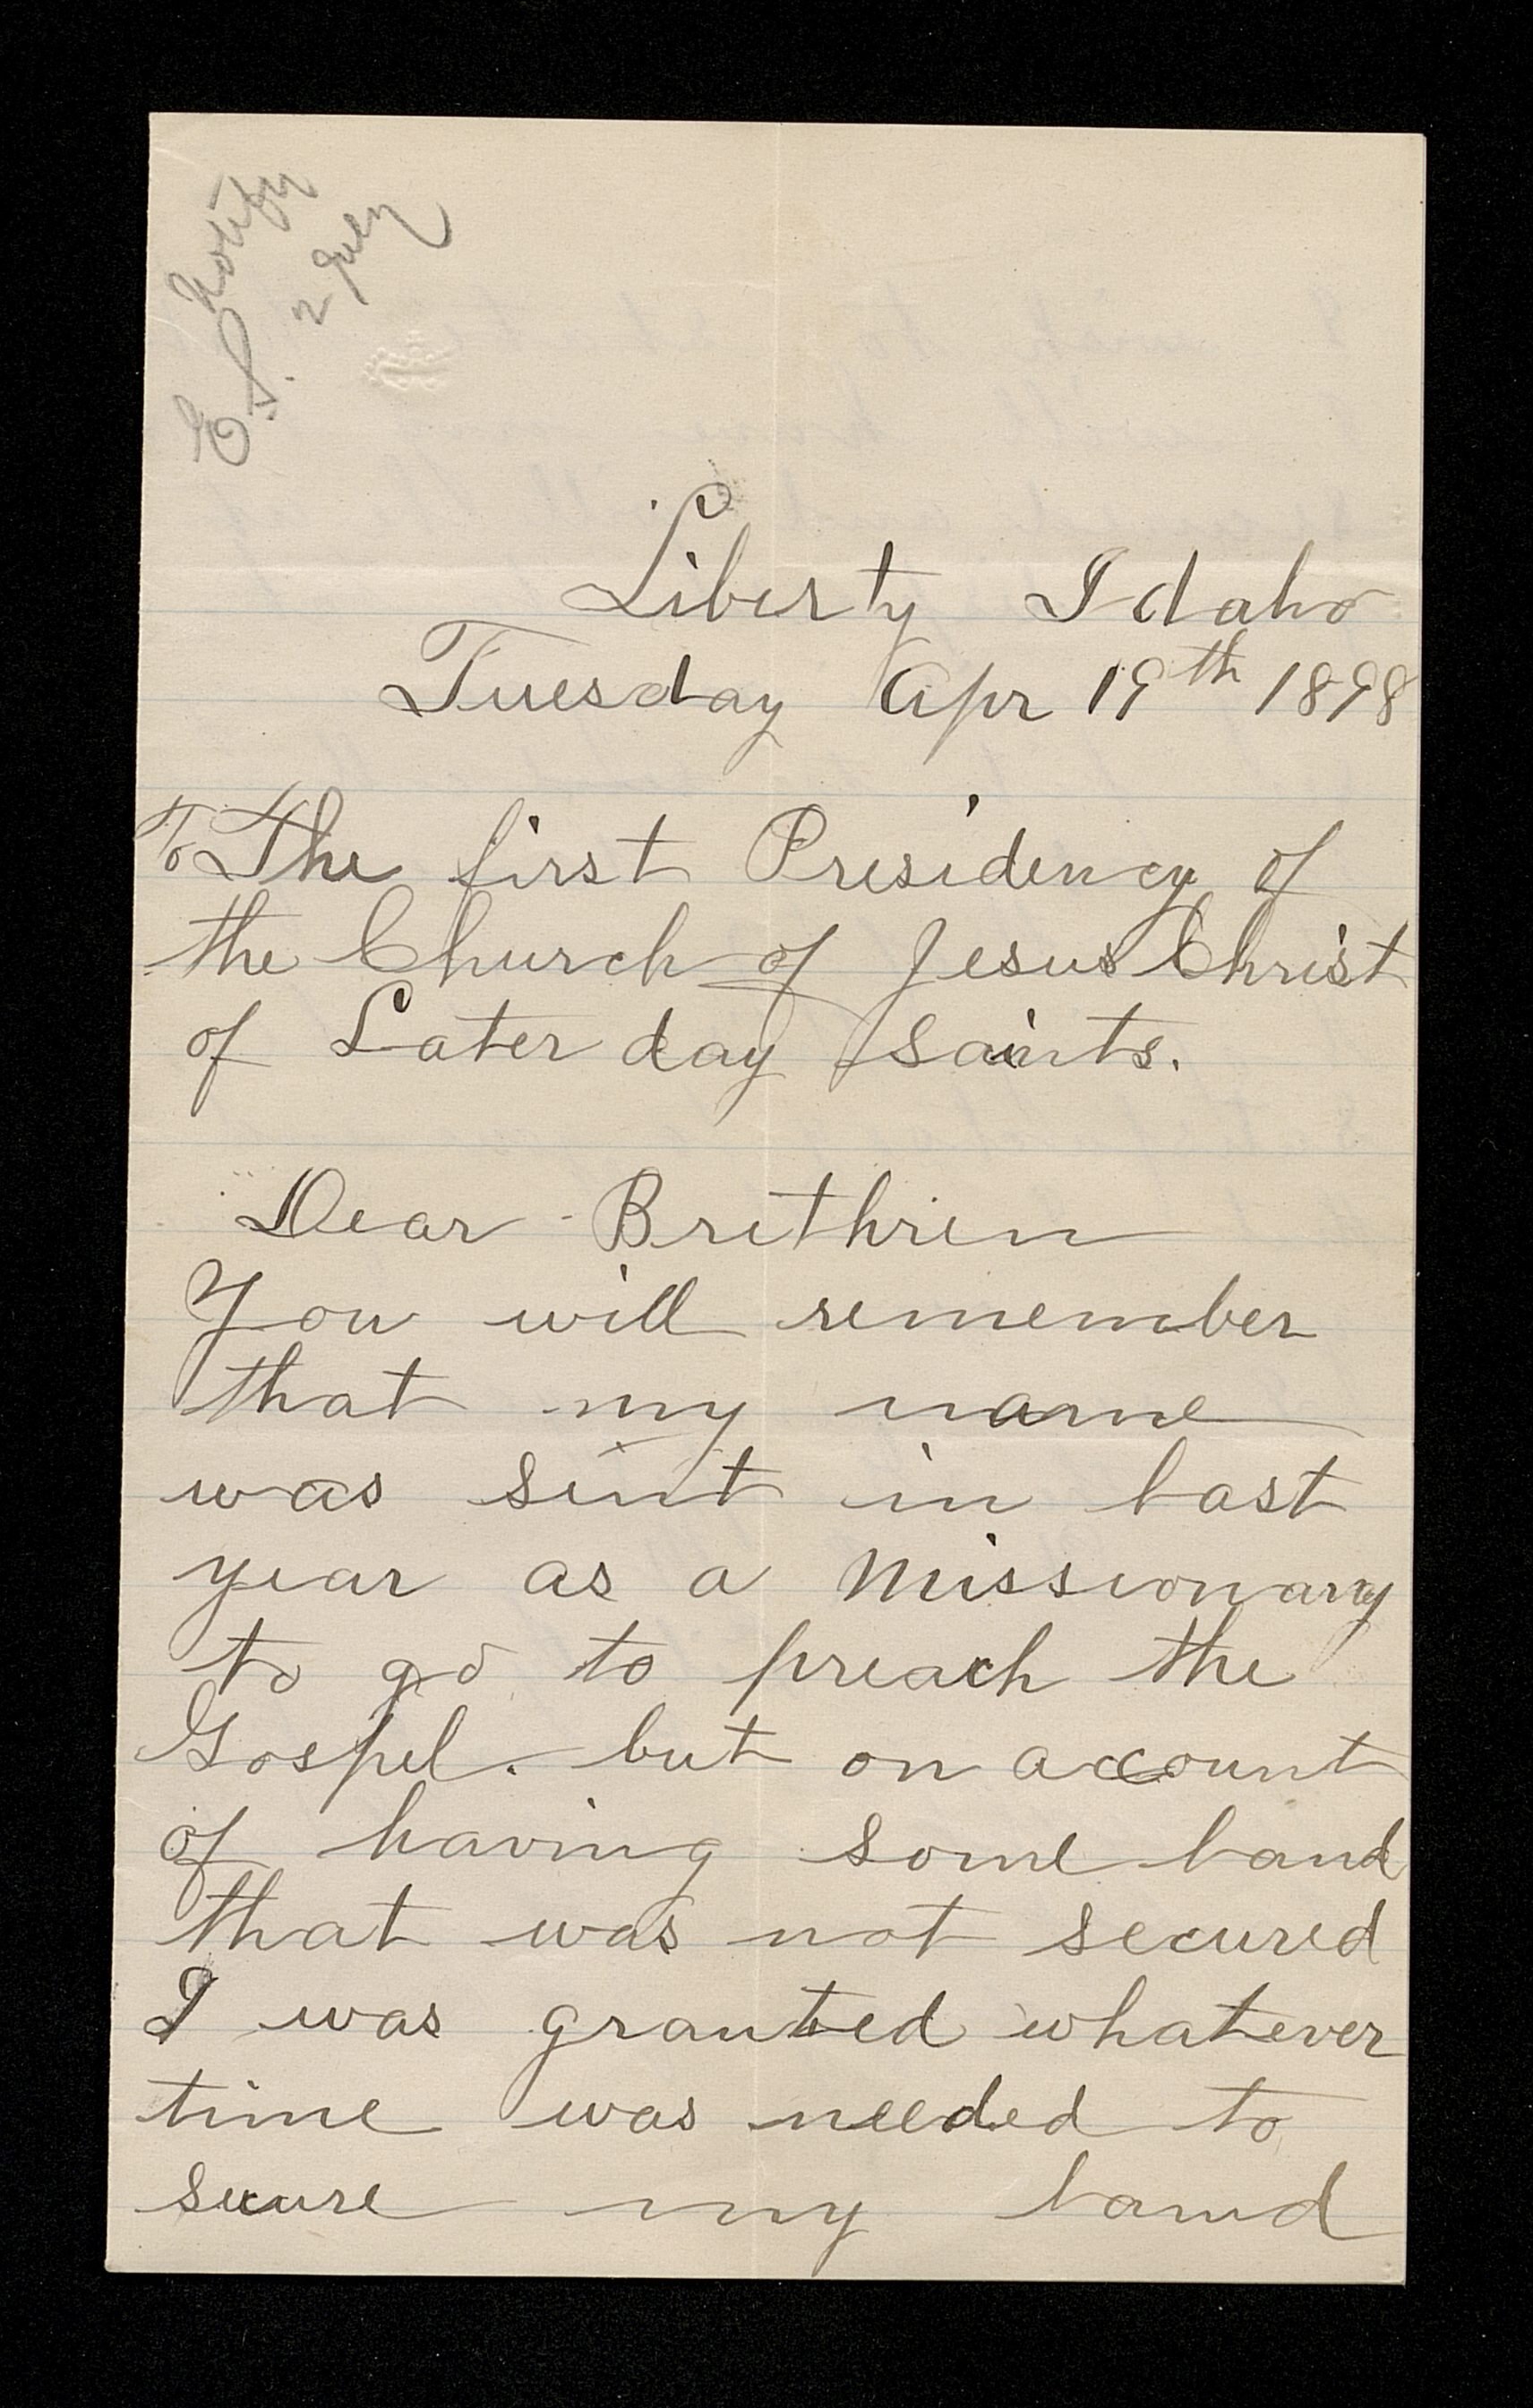 E.S. notify
2 July
Liberty Idaho
Tuesday Apr 19th 1898
To The first Presidency of
the Church of Jesus Christ
of Later day Saints.
Dear Brethren
You will remember
that my name
was sent in last
year as a Missionary
to go to preach the
Gospel. but on account
of having some land
that was not secured
I was granted whatever
time was needed to
secure my land